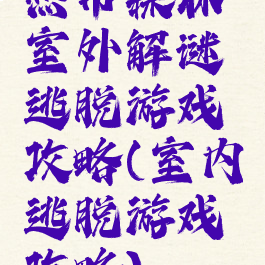 室外解谜
逃脱游戏
攻略(室内
逃脱游戏
攻略)